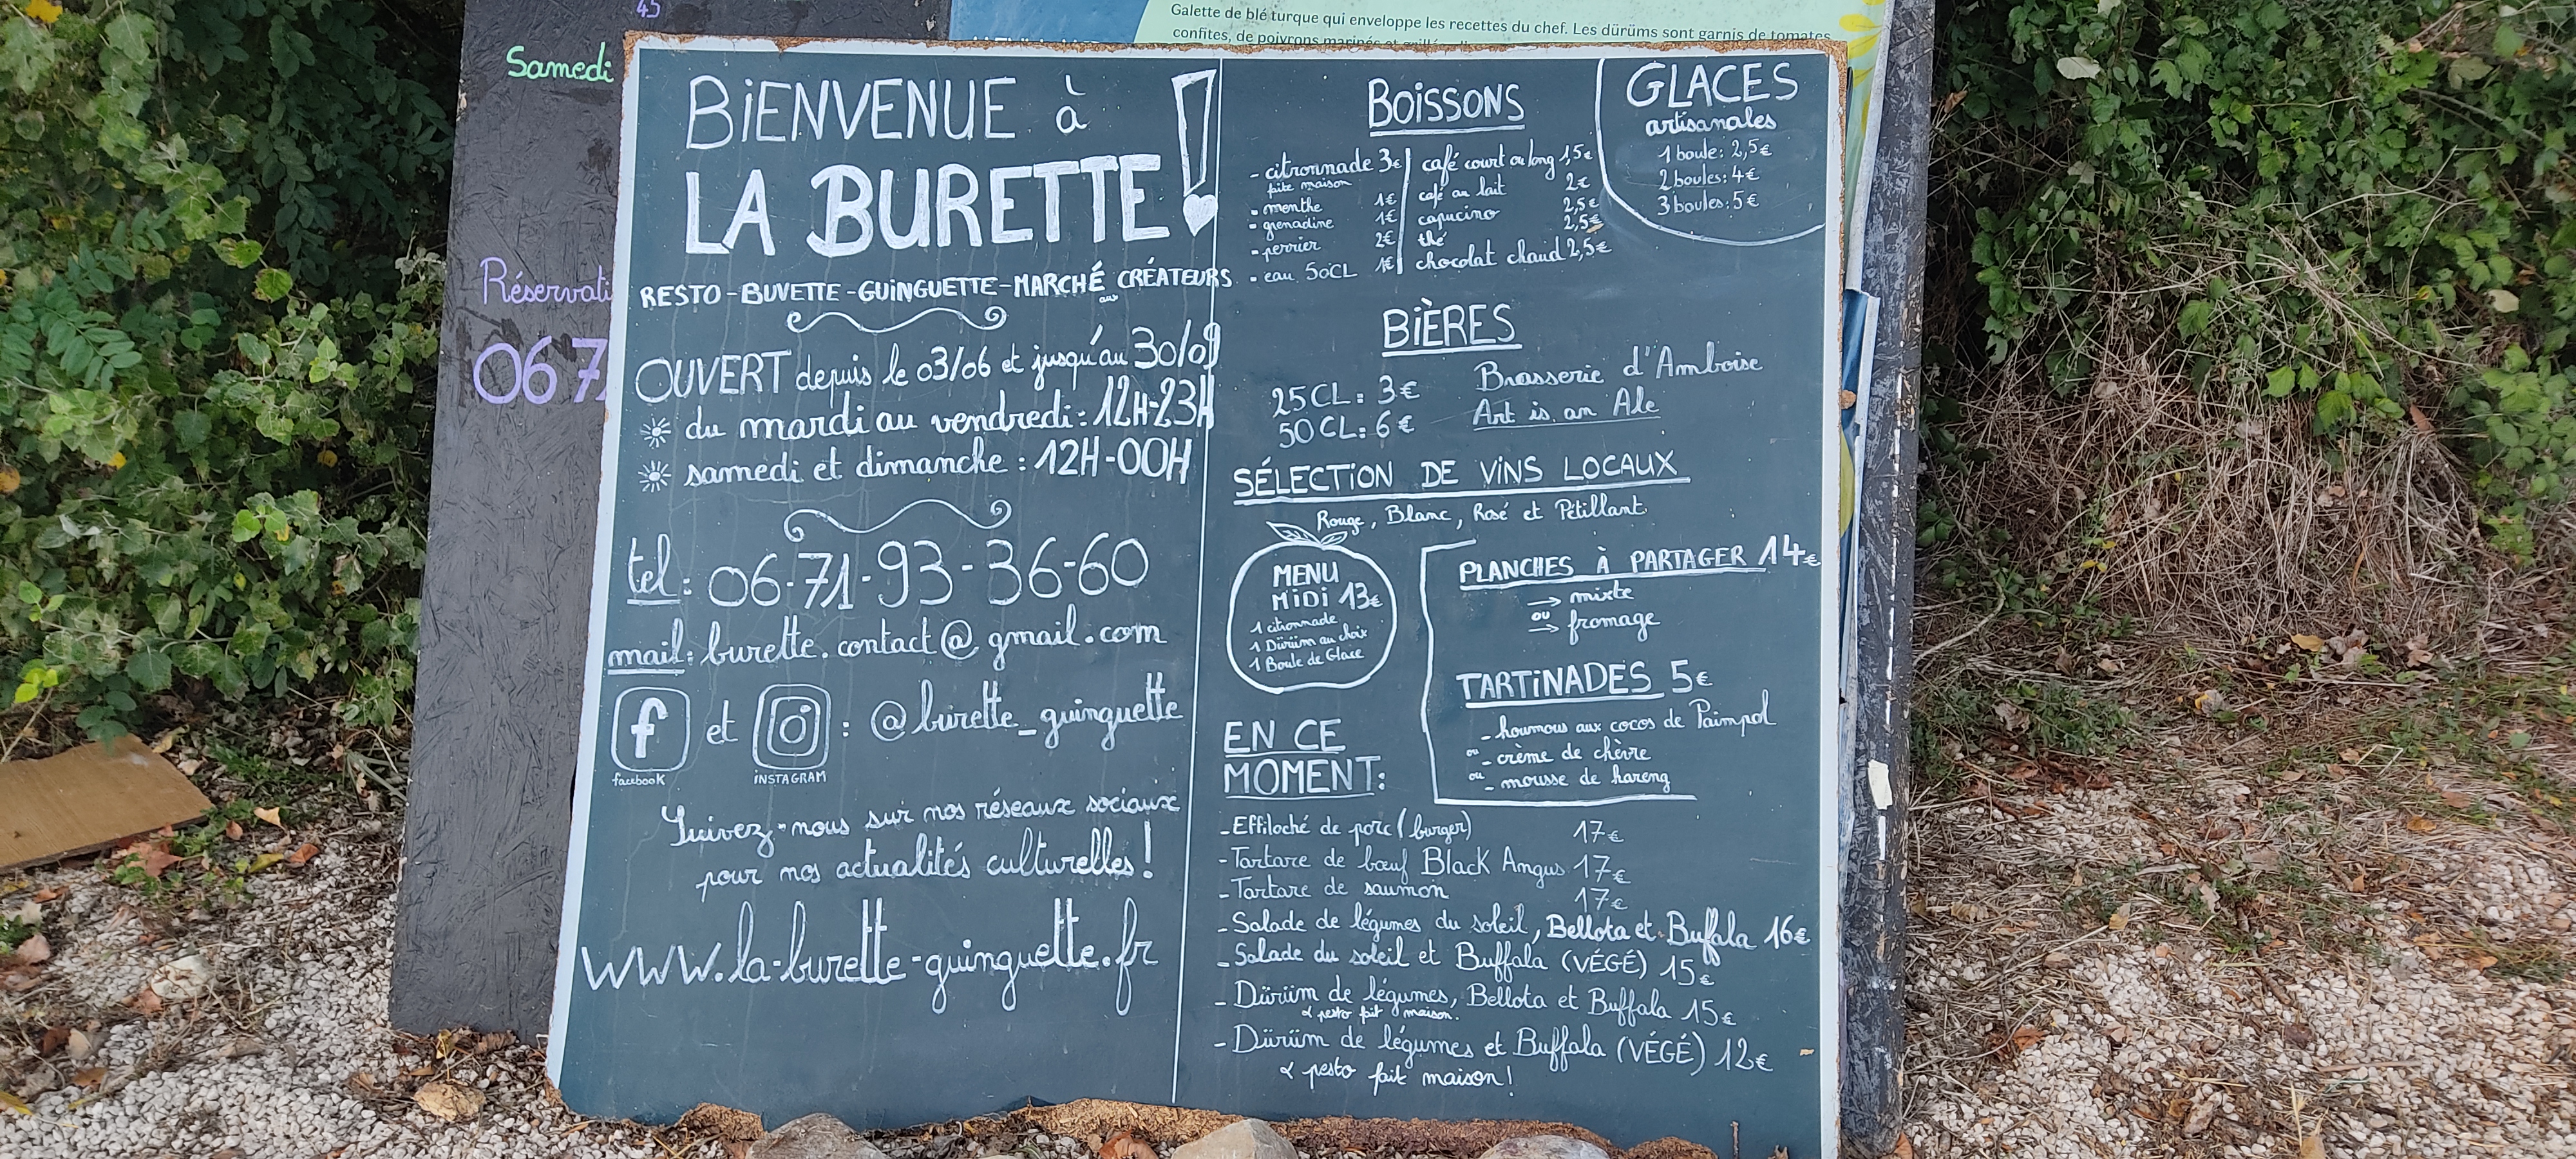 45
Galette de blé turque qui enveloppe les recettes du chef. Les dürüms sont garnis de tomates
confites, de poivrons marinés et
Samedi
Réservati
067
BiENVENUE à
LA BURETTE!
RESTO - BUVETTE - GUiNGUETTE - MARCHÉ aux CRÉATEURS
OUVERT depuis le 03/06 et jusqu'au 30/09
du mardi au vendredi : 12H-23H
samedi et dimanche : 12H-00H
tel : 06-71-93-36-60
mail : burette.contact@gmail.com
f et : @burette_guinguette
facebook iNSTAGRAM
Suivez-nous sur nos réseaux sociaux
pour nos actualités culturelles !
www.la-burette-guinguette.fr
BOiSSONS
- citronnade 3€
faite maison
- menthe 1€
- grenadine 1€
- perrier 2€
- eau 50CL 1€
café court ou long 1,5€
café au lait 2€
capucino 2,5€
thé 2,5€
chocolat chaud 2,5€
GLACES
artisanales
1 boule : 2,5€
2 boules : 4€
3 boules : 5€
BiÈRES
25CL : 3€
50CL : 6€
Brasserie d'Amboise
Art is an Ale
SÉLECTiON DE ViNS LOCAUX
Rouge, Blanc, Rosé et Pétillant
MENU
MiDi 13€
1 citronnade
1 Dürüm au choix
1 Boule de Glace
PLANCHES À PARTAGER 14€
→ mixte
ou
→ fromage
TARTiNADES 5€
- houmous aux cocos de Paimpol
ou - crème de chèvre
ou - mousse de hareng
EN CE
MOMENT :
- Effiloché de porc (burger) 17€
- Tartare de bœuf Black Angus 17€
- Tartare de saumon 17€
- Salade de légumes du soleil, Bellota et Buffala 16€
- Salade du soleil et Buffala (VÉGÉ) 15€
- Dürüm de légumes, Bellota et Buffala 15€
& pesto fait maison.
- Dürüm de légumes et Buffala (VÉGÉ) 12€
& pesto fait maison !